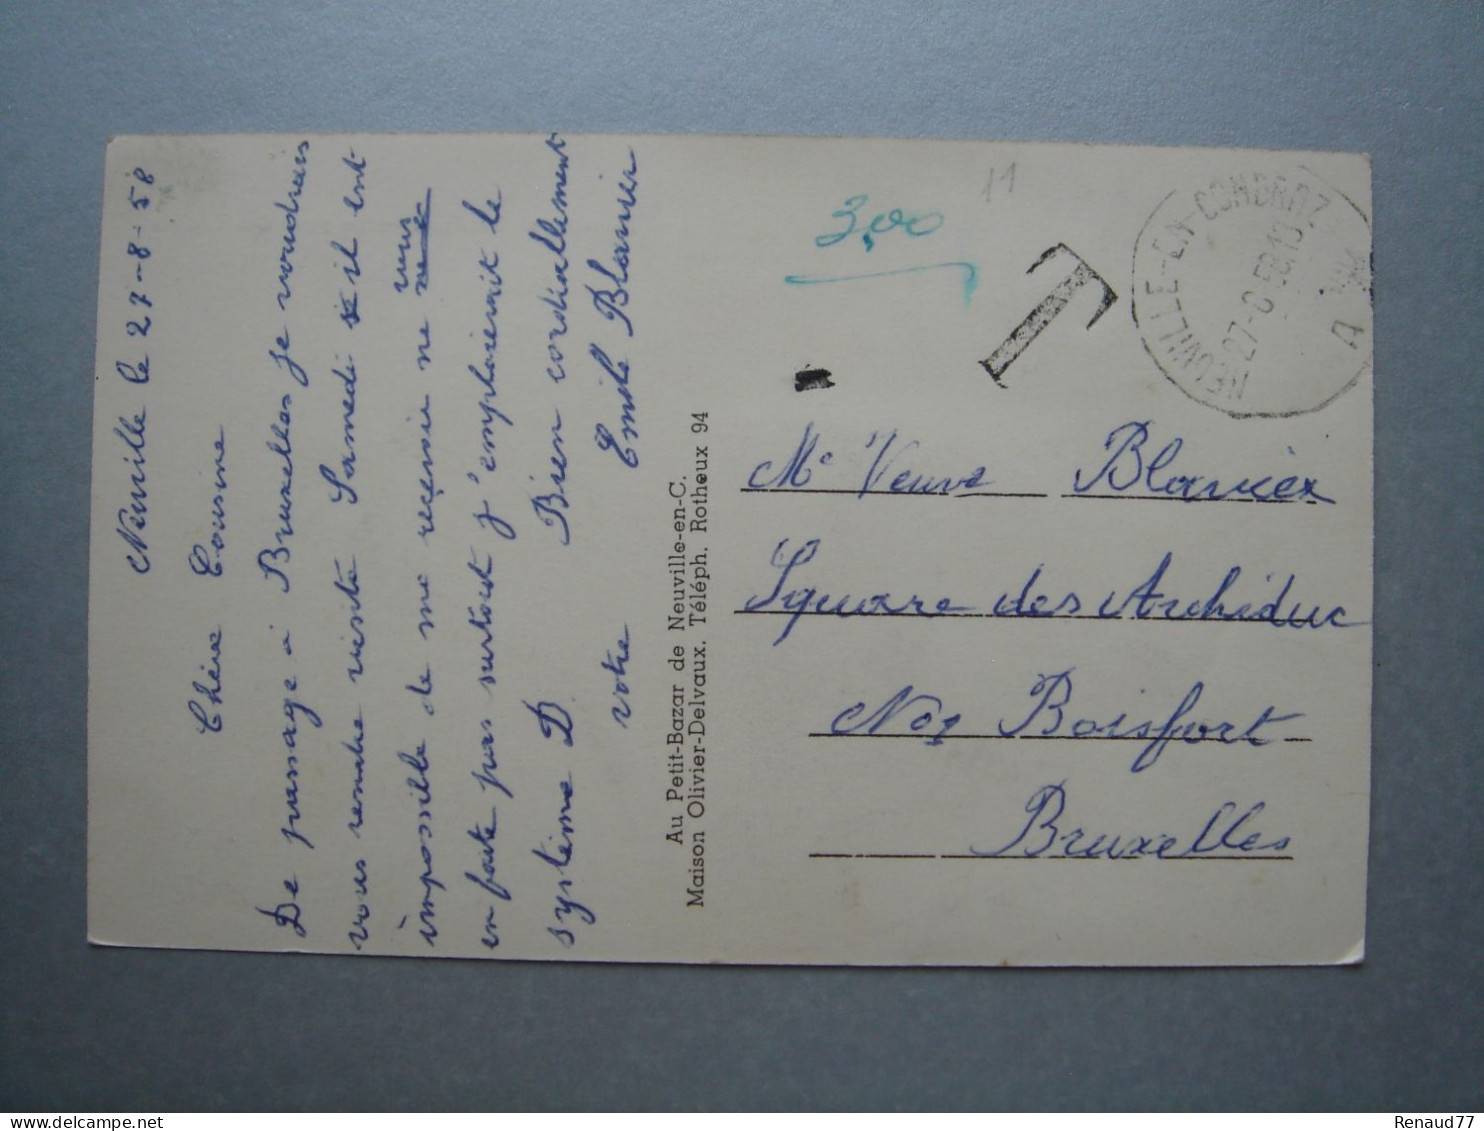 Neuville le 27-8-58
Chère Cousine
De passage à Bruxelles je voudrais
vous rendre visite Samedi s'il est
impossible de me reçevoir ne vous
en faite pas surtout j'emploierait le
système D
Bien cordiallement
votre Emile Blavier
Au Petit-Bazar de Neuville-en-C.
Maison Olivier-Delvaux. Téléph. Rotheux 94
11
3,00
T
NEUVILLE-EN-CONDROZ
27-8-58.13
A
Me Veuve Blavier
Square des Archiduc
No 9 Boisfort
Bruxelles
Renaud77